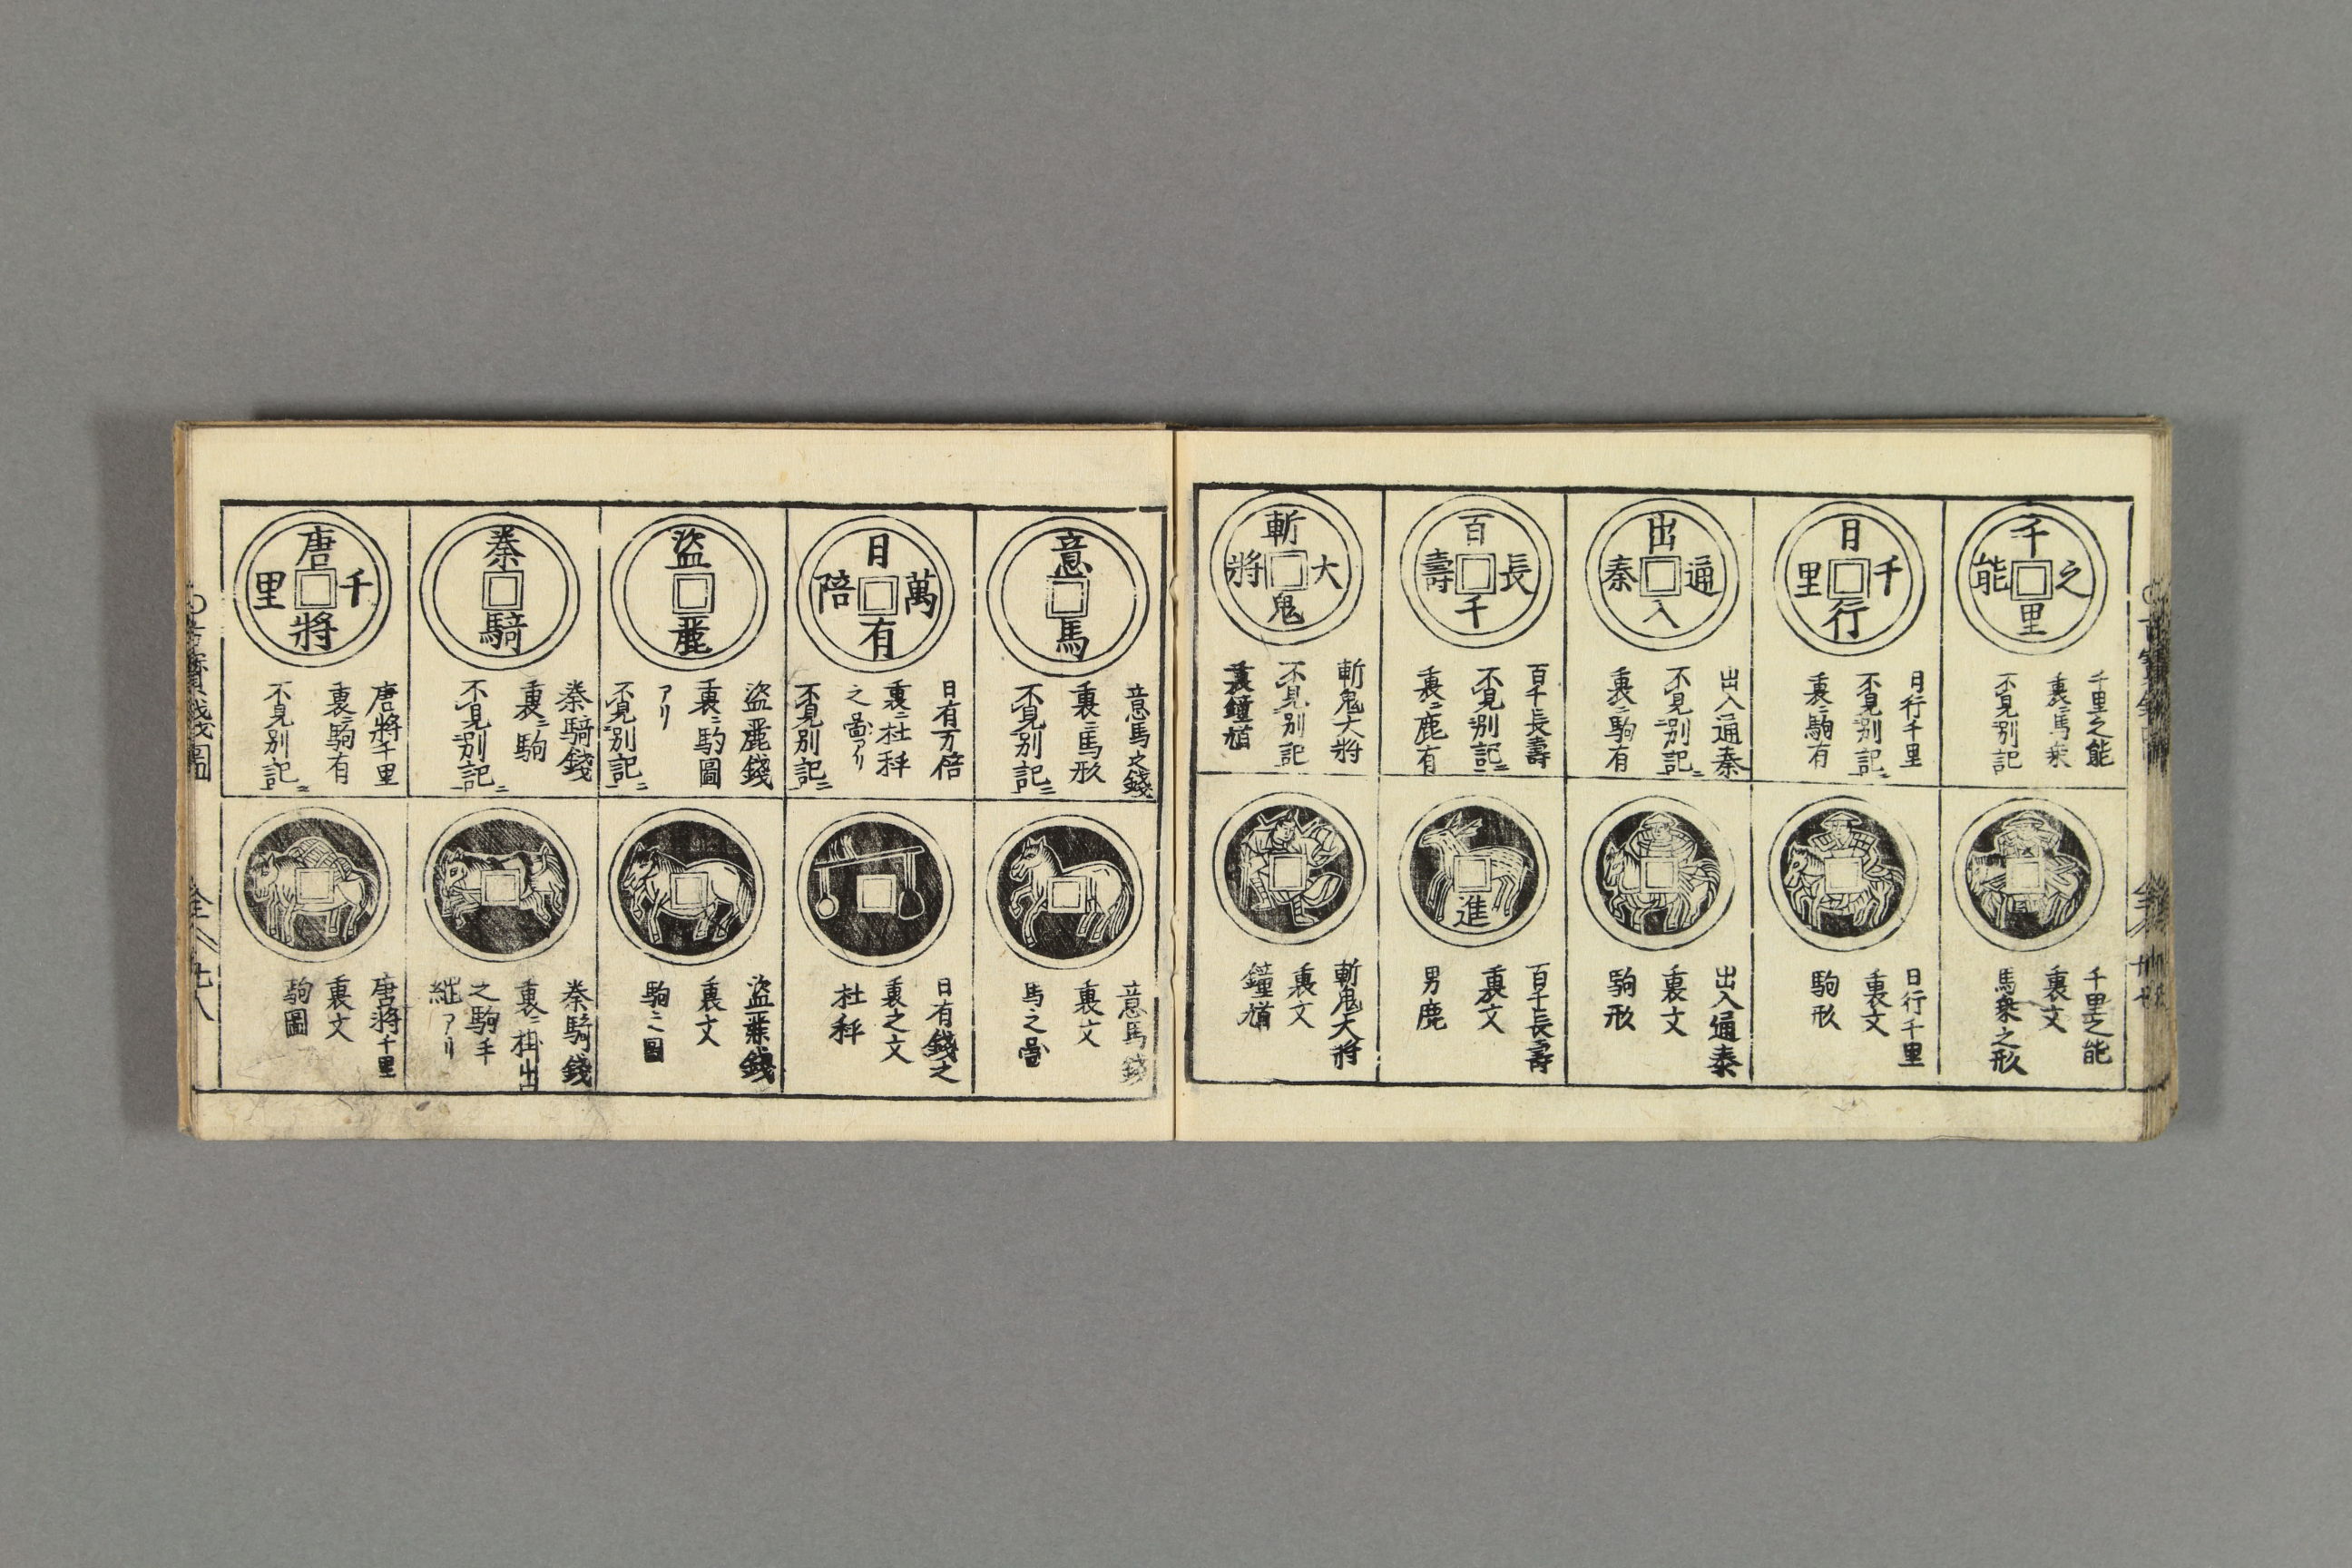 千里之能
千里之能
裏ニ馬乗
不見別記
日行千里
日行千里
不見別記ニ
裏ニ駒有
出入通泰
出入通泰
不見別記ニ
裏ニ駒有
百千長壽
百千長壽
不見別記ニ
裏ニ鹿有
斬鬼大將
斬鬼大将
不見別記
裏鐘馗
千里之能
裏文
馬乗之形
日行千里
裏文
駒形
出入通泰
裏文
駒形
進
百千長壽
裏文
男鹿
斬鬼大将
裏文
鐘馗
意馬
意馬之錢
裏ニ馬形
不見別記ニ
日有萬陪
日有万倍
裏ニ杜秤
之圖アリ
不見別記ニ
盜驪
盜驪錢
裏ニ駒圖
アリ
不見別記ニ
秦騎
秦騎錢
裏ニ駒
不見別記ニ
唐將千里
唐將千里
裏ニ駒有
不見別記ニ
意馬錢
裏文
馬之圖
日有錢之
裏之文
杜秤
裏文
駒之圖
秦騎錢
裏ニ掛出
之駒手
綱アリ
唐將千里
裏文
駒圖